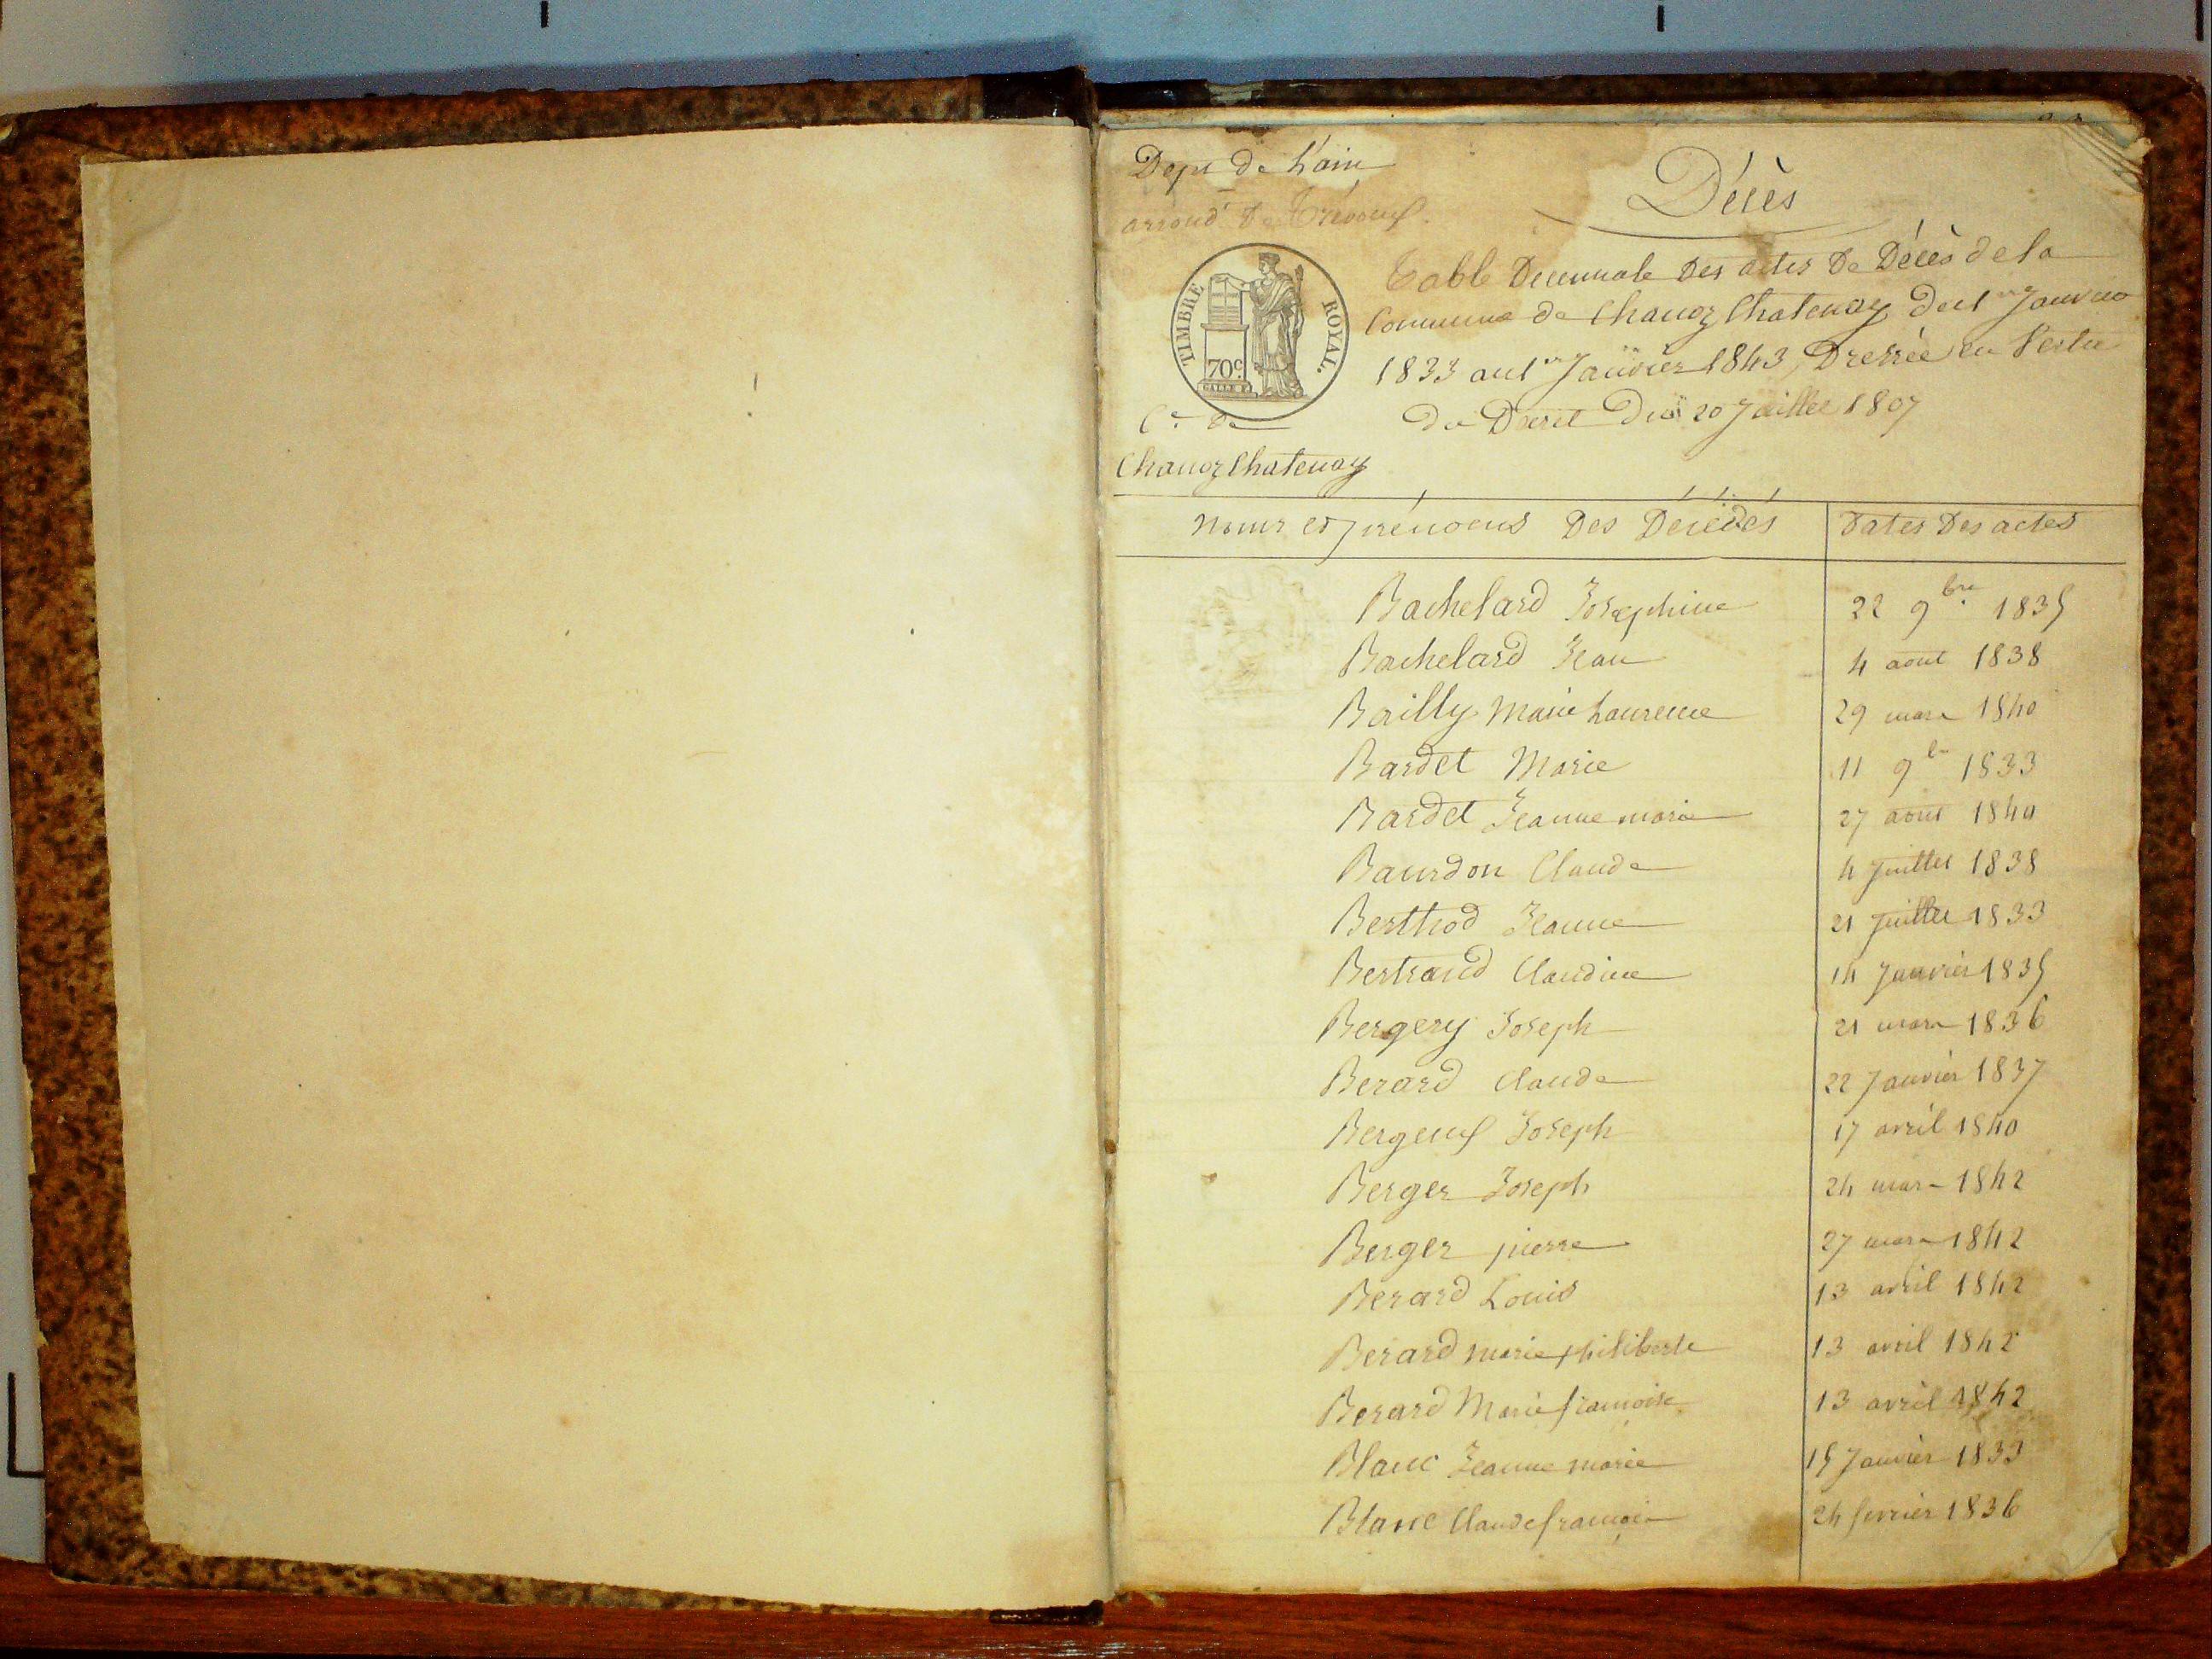 Dept de L'ain
arrondt De Trévoux.
Décès
TIMBRE ROYAL.
70c.
Table Decennale Des actes De Décès de la
Commune de Chanoz Chatenay du 1er Janvier
1833 au 1er Janvier 1843, Dressée en Vertu
du Décret Du 20 Juillet 1807
Cne De
Chanoz Chatenay
Noms et prénoms Des Décédés | Dates Des actes
Bachelard Josephine 22 9bre 1835
Bachelard Jean 4 aout 1838
Bailly Marie Laurence 29 mars 1840
Bardet Marie 11 9b 1833
Bardet Jeanne marie 27 aout 1840
Baurdon Claude 4 Juillet 1838
Berthod Jeanne 21 Juillet 1833
Bertrand Claudine 14 Janvier 1835
Bergery Joseph 21 mars 1836
Berard Claude 22 Janvier 1837
Joseph 17 avril 1840
Berger Joseph 24 mars 1842
Berger pierre 27 mars 1842
Berard Louis 13 avril 1842
Berard marie philiberte 13 avril 1842
Berard Marie francoise 13 avril 1842
Blanc Jeanne marie 15 Janvier 1833
Blanc Claude francois 24 fevrier 1836